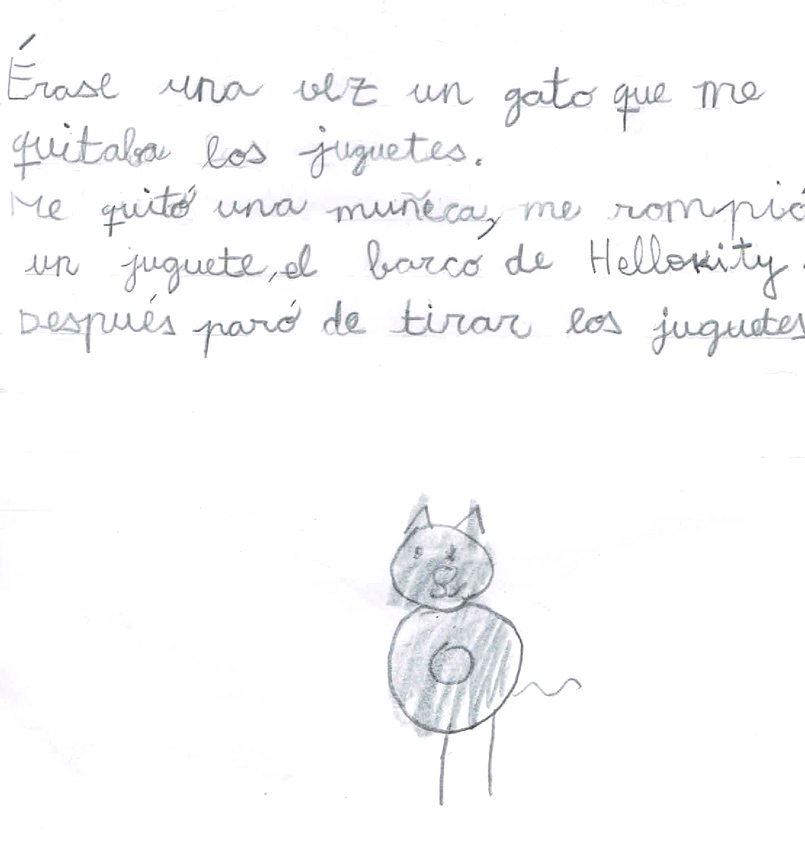 Érase una vez un gato que me
quitaba los juguetes.
Me quitó una muñeca, me rompió
un juguete, el barco de Hellokity.
Después paró de tirar los juguetes